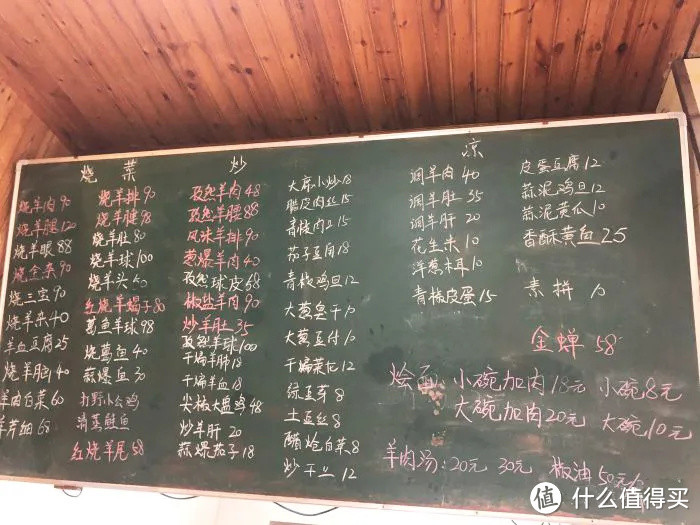 烧 菜
烧羊肉 90
烧羊腿 120
烧羊眼 88
烧全杂 90
烧三宝 90
烧羊杂 40
羊血豆腐 25
烧羊胸 40
羊肉白菜 60
烧羊排 90
烧羊腱 98
烧羊肚 80
烧羊球 100
烧羊头 40
红烧羊蝎子 80
鱼羊球 98
烧鱼 40
蒜爆鱼 30
打野小公鸡
清蒸鲜鱼
红烧羊尾 58
炒
孜然羊肉 48
孜然羊腰 88
风味羊排 90
葱爆羊肉 40
孜然球皮 68
椒盐羊肉 90
炒羊肚 35
孜然羊球 100
干煸羊肺 18
干煸羊血 18
尖椒大盘鸡 48
炒羊肝 20
蒜烧茄子 18
大麻小炒 18
腊皮肉丝 15
青椒肉 15
茄子豆角 18
青椒鸡旦 12
大葱皂干 10
大葱豆付 10
干煸菜花 12
绿豆芽 8
土豆丝 8
醋炝白菜 8
炒干 12
凉
调羊肉 40
调羊肚 35
调羊肝 20
花生米 10
洋葱木耳 10
青椒皮蛋 15
皮蛋豆腐 12
蒜泥鸡旦 12
蒜泥黄瓜 10
香酥黄鱼 25
素拼 10
金蝉 58
烩面：小碗加肉18元 小碗8元
大碗加肉20元 大碗10元
羊肉汤：20元 30元 椒油 50元
值 什么值得买